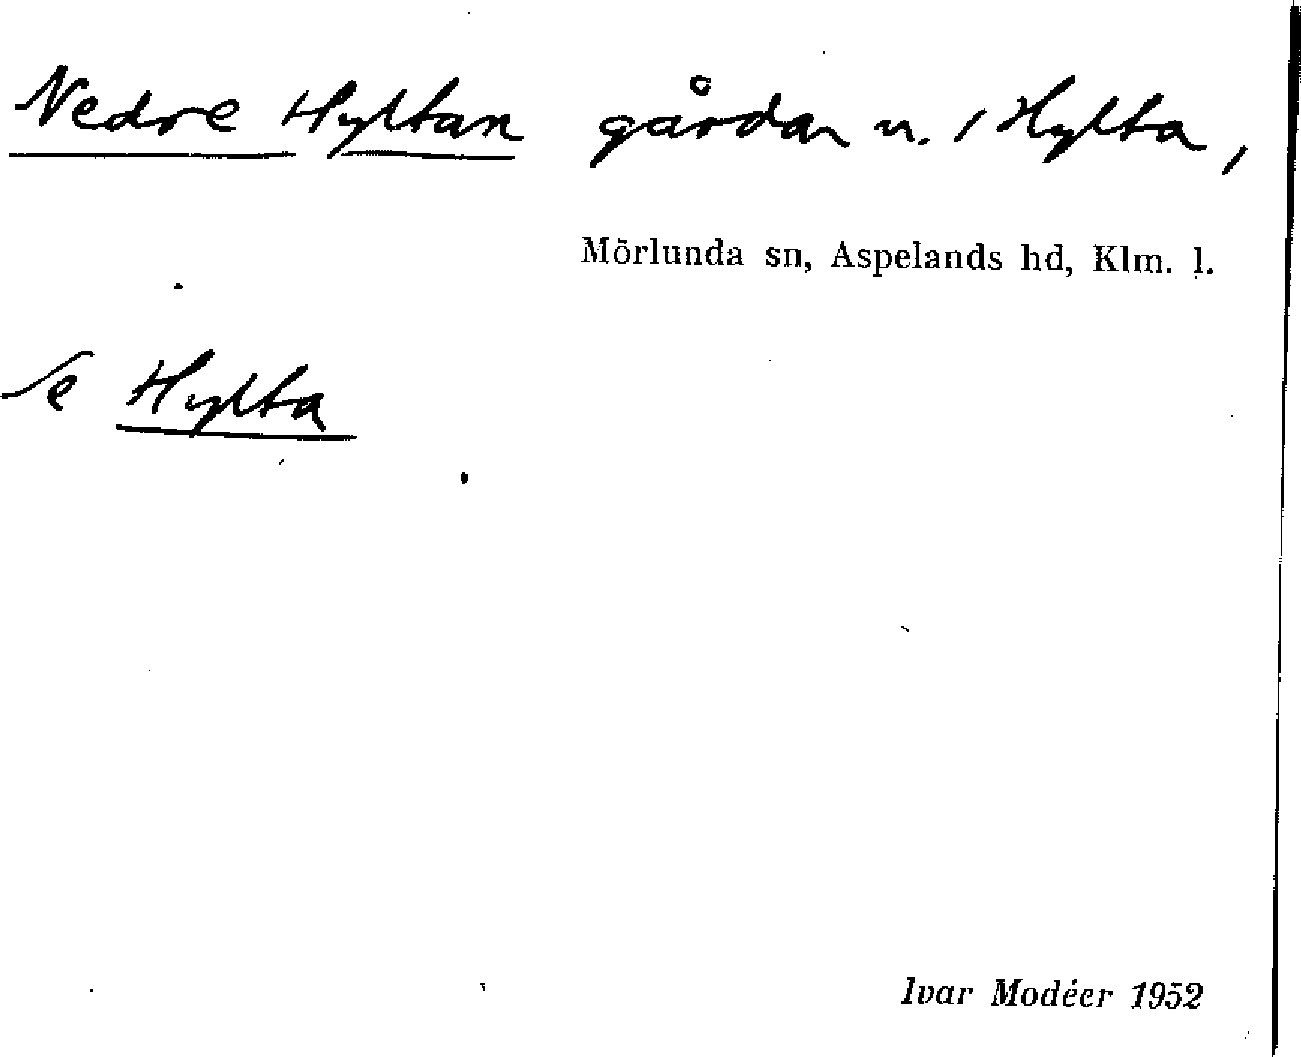 Nedre Hyltan gårdar n. i Hylta,
Mörlunda sn, Aspelands hd, Klm. l.
Se Hylta
Ivar Modéer 1952